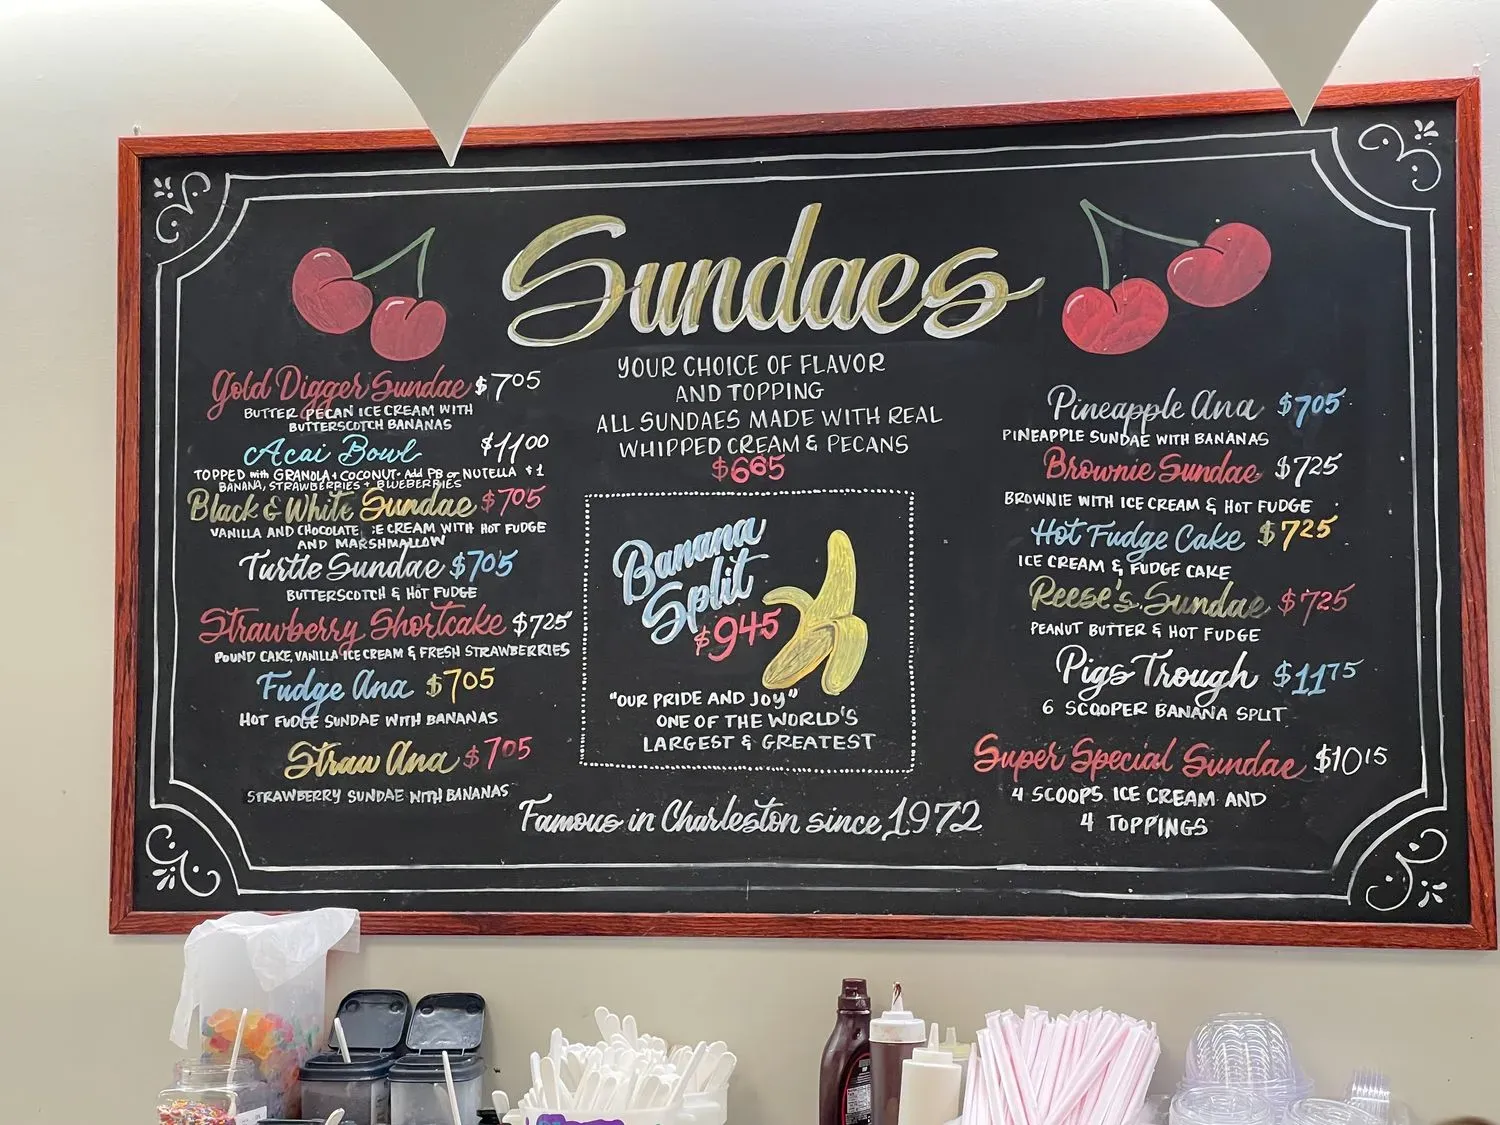 Sundaes
YOUR CHOICE OF FLAVOR
AND TOPPING
ALL SUNDAES MADE WITH REAL
WHIPPED CREAM & PECANS
$665
Gold Digger Sundae $705
BUTTER PECAN ICE CREAM WITH
BUTTERSCOTCH BANANAS
Acai Bowl $1100
TOPPED with GRANOLA + COCONUT · Add PB or NUTELLA $1
BANANA, STRAWBERRIES + BLUEBERRIES
Black & White Sundae $705
VANILLA AND CHOCOLATE :E CREAM WITH HOT FUDGE
AND MARSHMALLOW
Turtle Sundae $705
BUTTERSCOTCH & HOT FUDGE
Strawberry Shortcake $725
POUND CAKE, VANILLA ICE CREAM & FRESH STRAWBERRIES
Fudge Ana $705
HOT FUDGE SUNDAE WITH BANANAS
Straw Ana $705
STRAWBERRY SUNDAE WITH BANANAS
Banana
Split
$945
"OUR PRIDE AND JOY"
ONE OF THE WORLD'S
LARGEST & GREATEST
Famous in Charleston since 1972
Pineapple Ana $705
PINEAPPLE SUNDAE WITH BANANAS
Brownie Sundae $725
BROWNIE WITH ICE CREAM & HOT FUDGE
Hot Fudge Cake $725
ICE CREAM & FUDGE CAKE
Reese's Sundae $725
PEANUT BUTTER & HOT FUDGE
Pigs Trough $1175
6 SCOOPER BANANA SPLIT
Super Special Sundae $1015
4 SCOOPS ICE CREAM AND
4 TOPPINGS